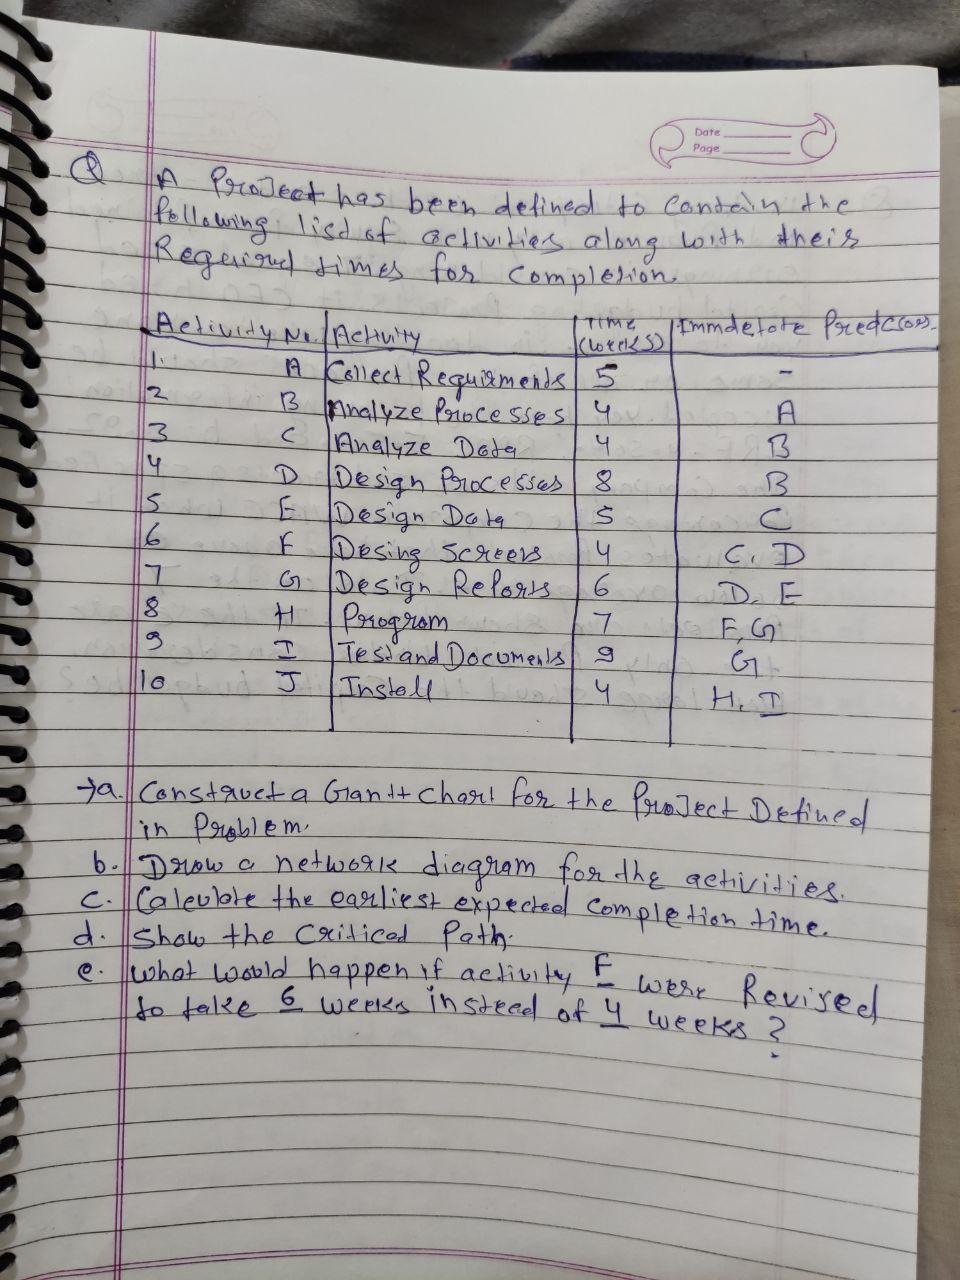 Date
Page
Q A Project has been defined to contain the
following list of activities along with their
Required times for completion.
Activity No. Activity Time (weeks) Immdetote Predc(os).
1. A Collect Requirments 5 -
2 B Analyze Processes 4 A
3 C Analyze Data 4 B
4 D Design Processes 8 B
5 E Design Data 5 C
6 F Desing Screens 4 C, D
7 G Design Reports 6 D, E
8 H Program 7 F, G
9 I Test and Documents 9 G
10 J Install 4 H, I
→a. Construct a Gantt chart for the Project Defined
in Problem.
b. Draw a network diagram for the activities.
c. Calculate the earliest expected completion time.
d. Show the Critical Path.
e. What would happen if activity F were Revised
to take 6 weeks instead of 4 weeks?